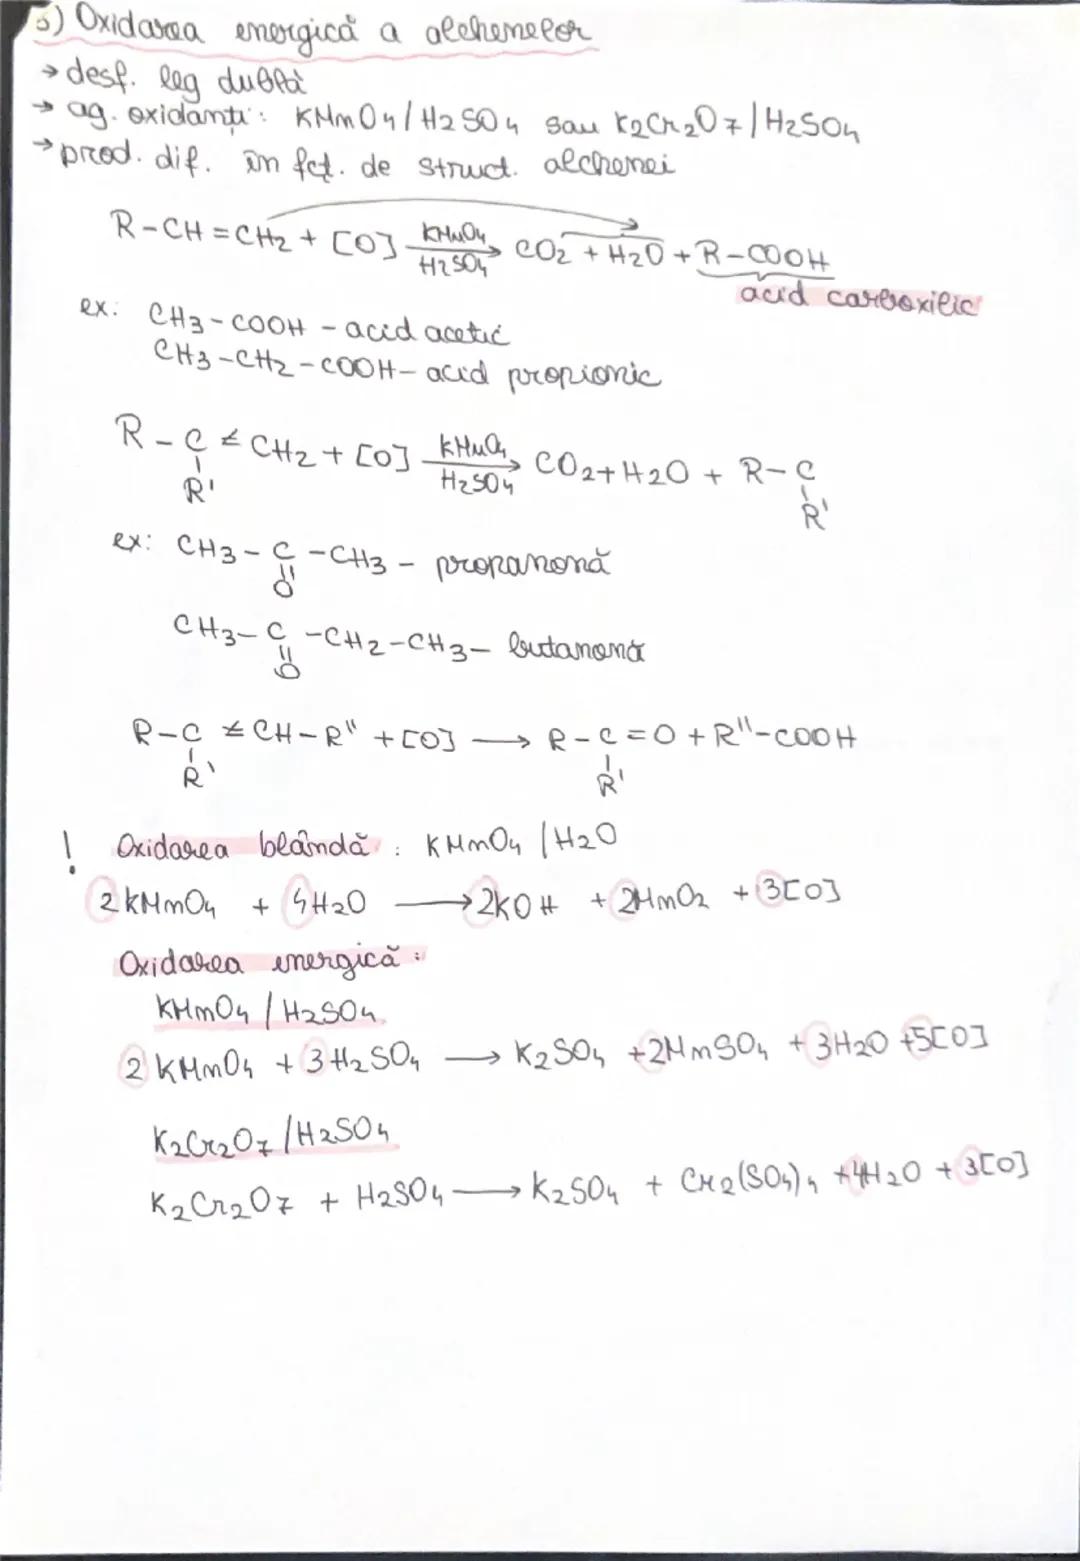 5) Oxidarea energică a alchenelor
→ desf. leg dublă
→ ag. oxidanți: KMnO4/H2SO4 sau K2Cr2O7/H2SO4
→ prod. dif. în fct. de struct. alchenei
R-CH=CH2 + [O] KMnO4 H2SO4 → CO2 + H2O + R-COOH
acid carboxilic
ex: CH3-COOH - acid acetic
CH3-CH2-COOH- acid propionic
R-C≠CH2 + [O] KMnO4 H2SO4 → CO2+H2O + R-C
R' R'
ex: CH3-C-CH3 - propanonă
O
CH3-C-CH2-CH3- butanonă
O
R-C≠CH-R" + [O] → R-C=O + R"-COOH
R' R'
! Oxidarea blândă: KMnO4/H2O
2KMnO4 + 4H2O → 2KOH + 2MnO2 + 3[O]
Oxidarea energică:
KMnO4/H2SO4
2KMnO4 + 3H2SO4 → K2SO4 +2MnSO4 + 3H2O +5[O]
K2Cr2O7/H2SO4
K2Cr2O7 + H2SO4 → K2SO4 + Cr2(SO4)4 +4H2O + 3[O]